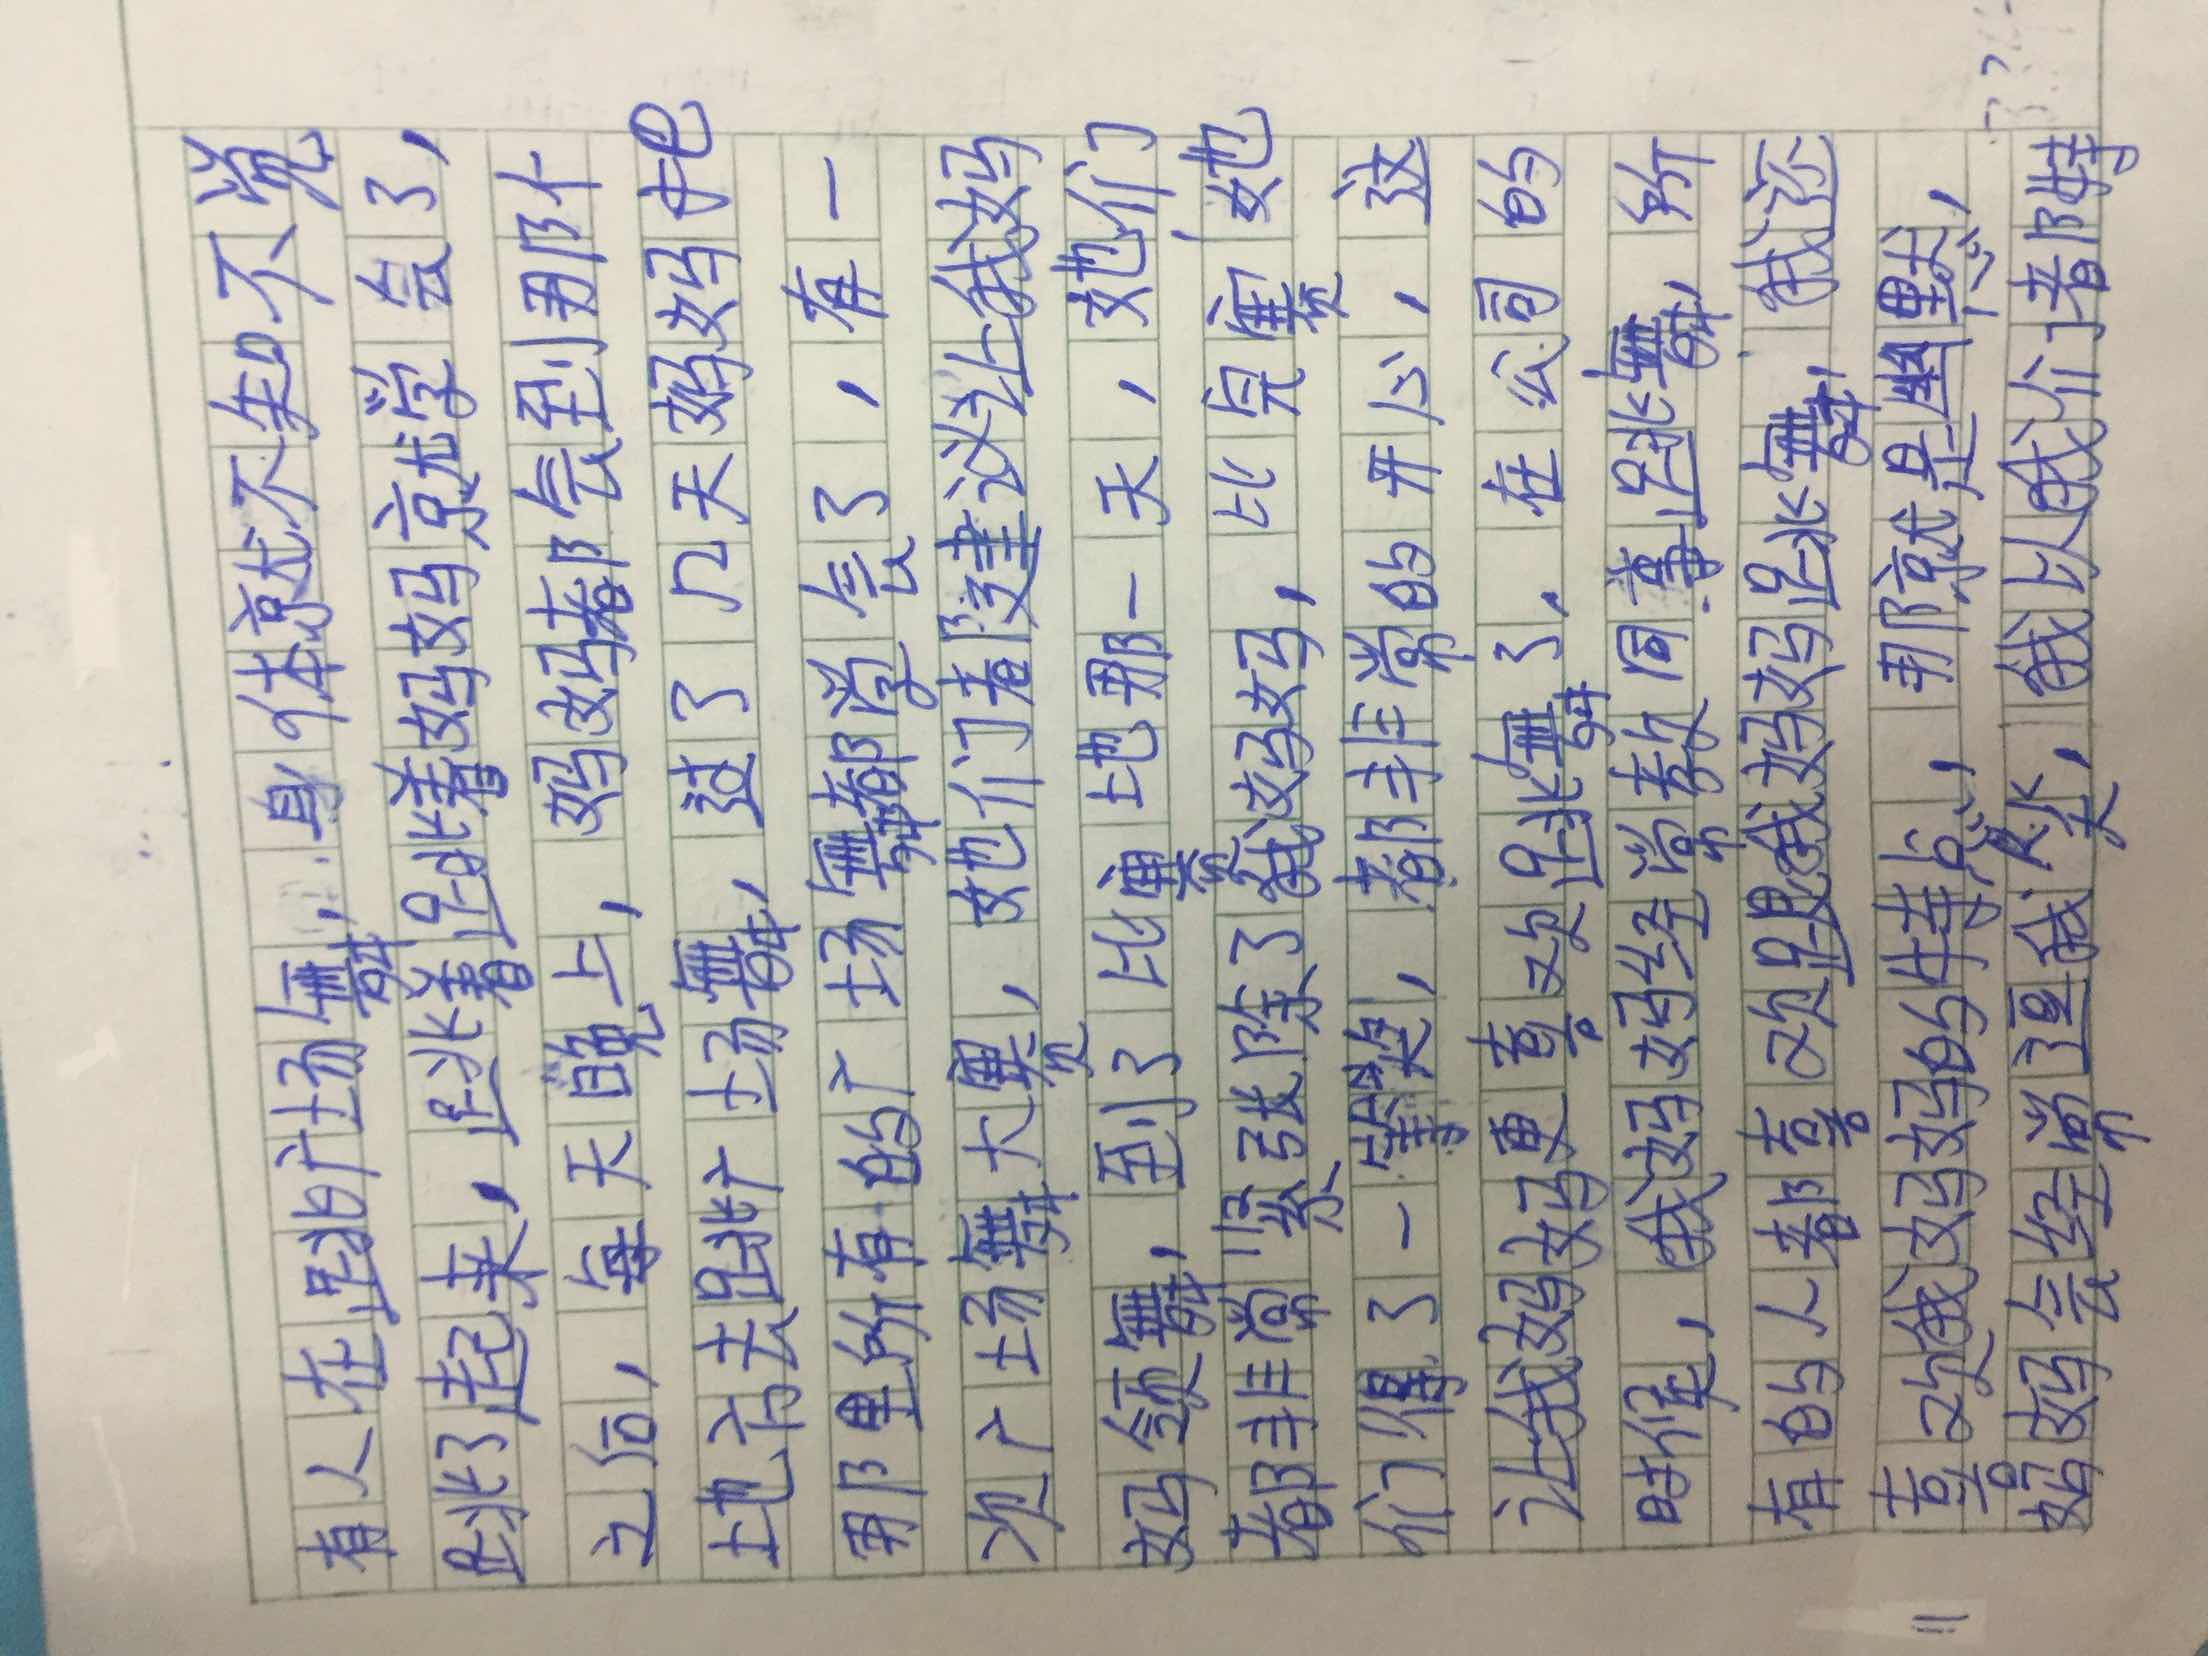 有人在跳广场舞,身体就不知不觉
跳了起来,跳着跳着妈妈就学会了,
之后,每天晚上,妈妈都会到那个
地方去跳广场舞,过了几天妈妈把
那里所有的广场舞都学会了,有一
次广场舞大赛,她们都建议让我妈
妈领舞,到了比赛地那一天,她们
都非常紧张除了我妈妈,比完赛她
们得了一等奖,都非常的开心,这
让我妈妈更喜欢跳舞了.在公司的
时候,我妈妈经常教同事跳舞,所
有的人都喜欢跟我妈妈跳舞,我还
喜欢我妈妈的特点,那就是幽默,
妈妈会经常逗我笑,我以我们都特